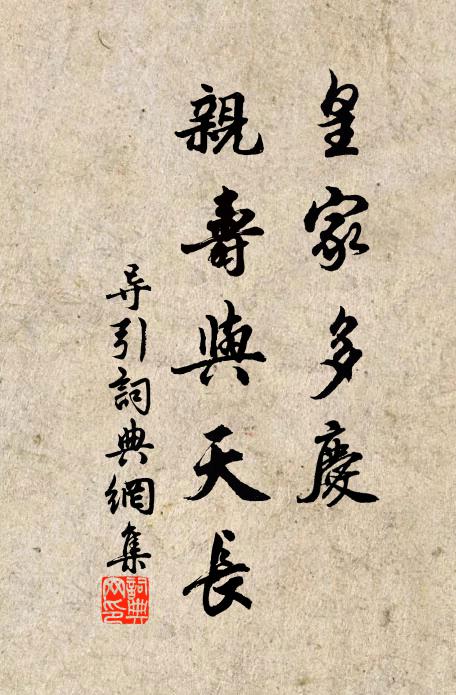 皇家多慶
親壽與天長
导引詞典網集
詞典
文印